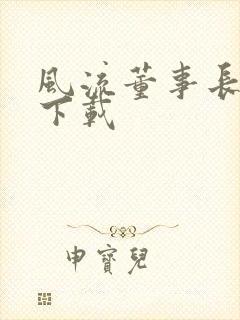 風流董事長
下載
申寶兒